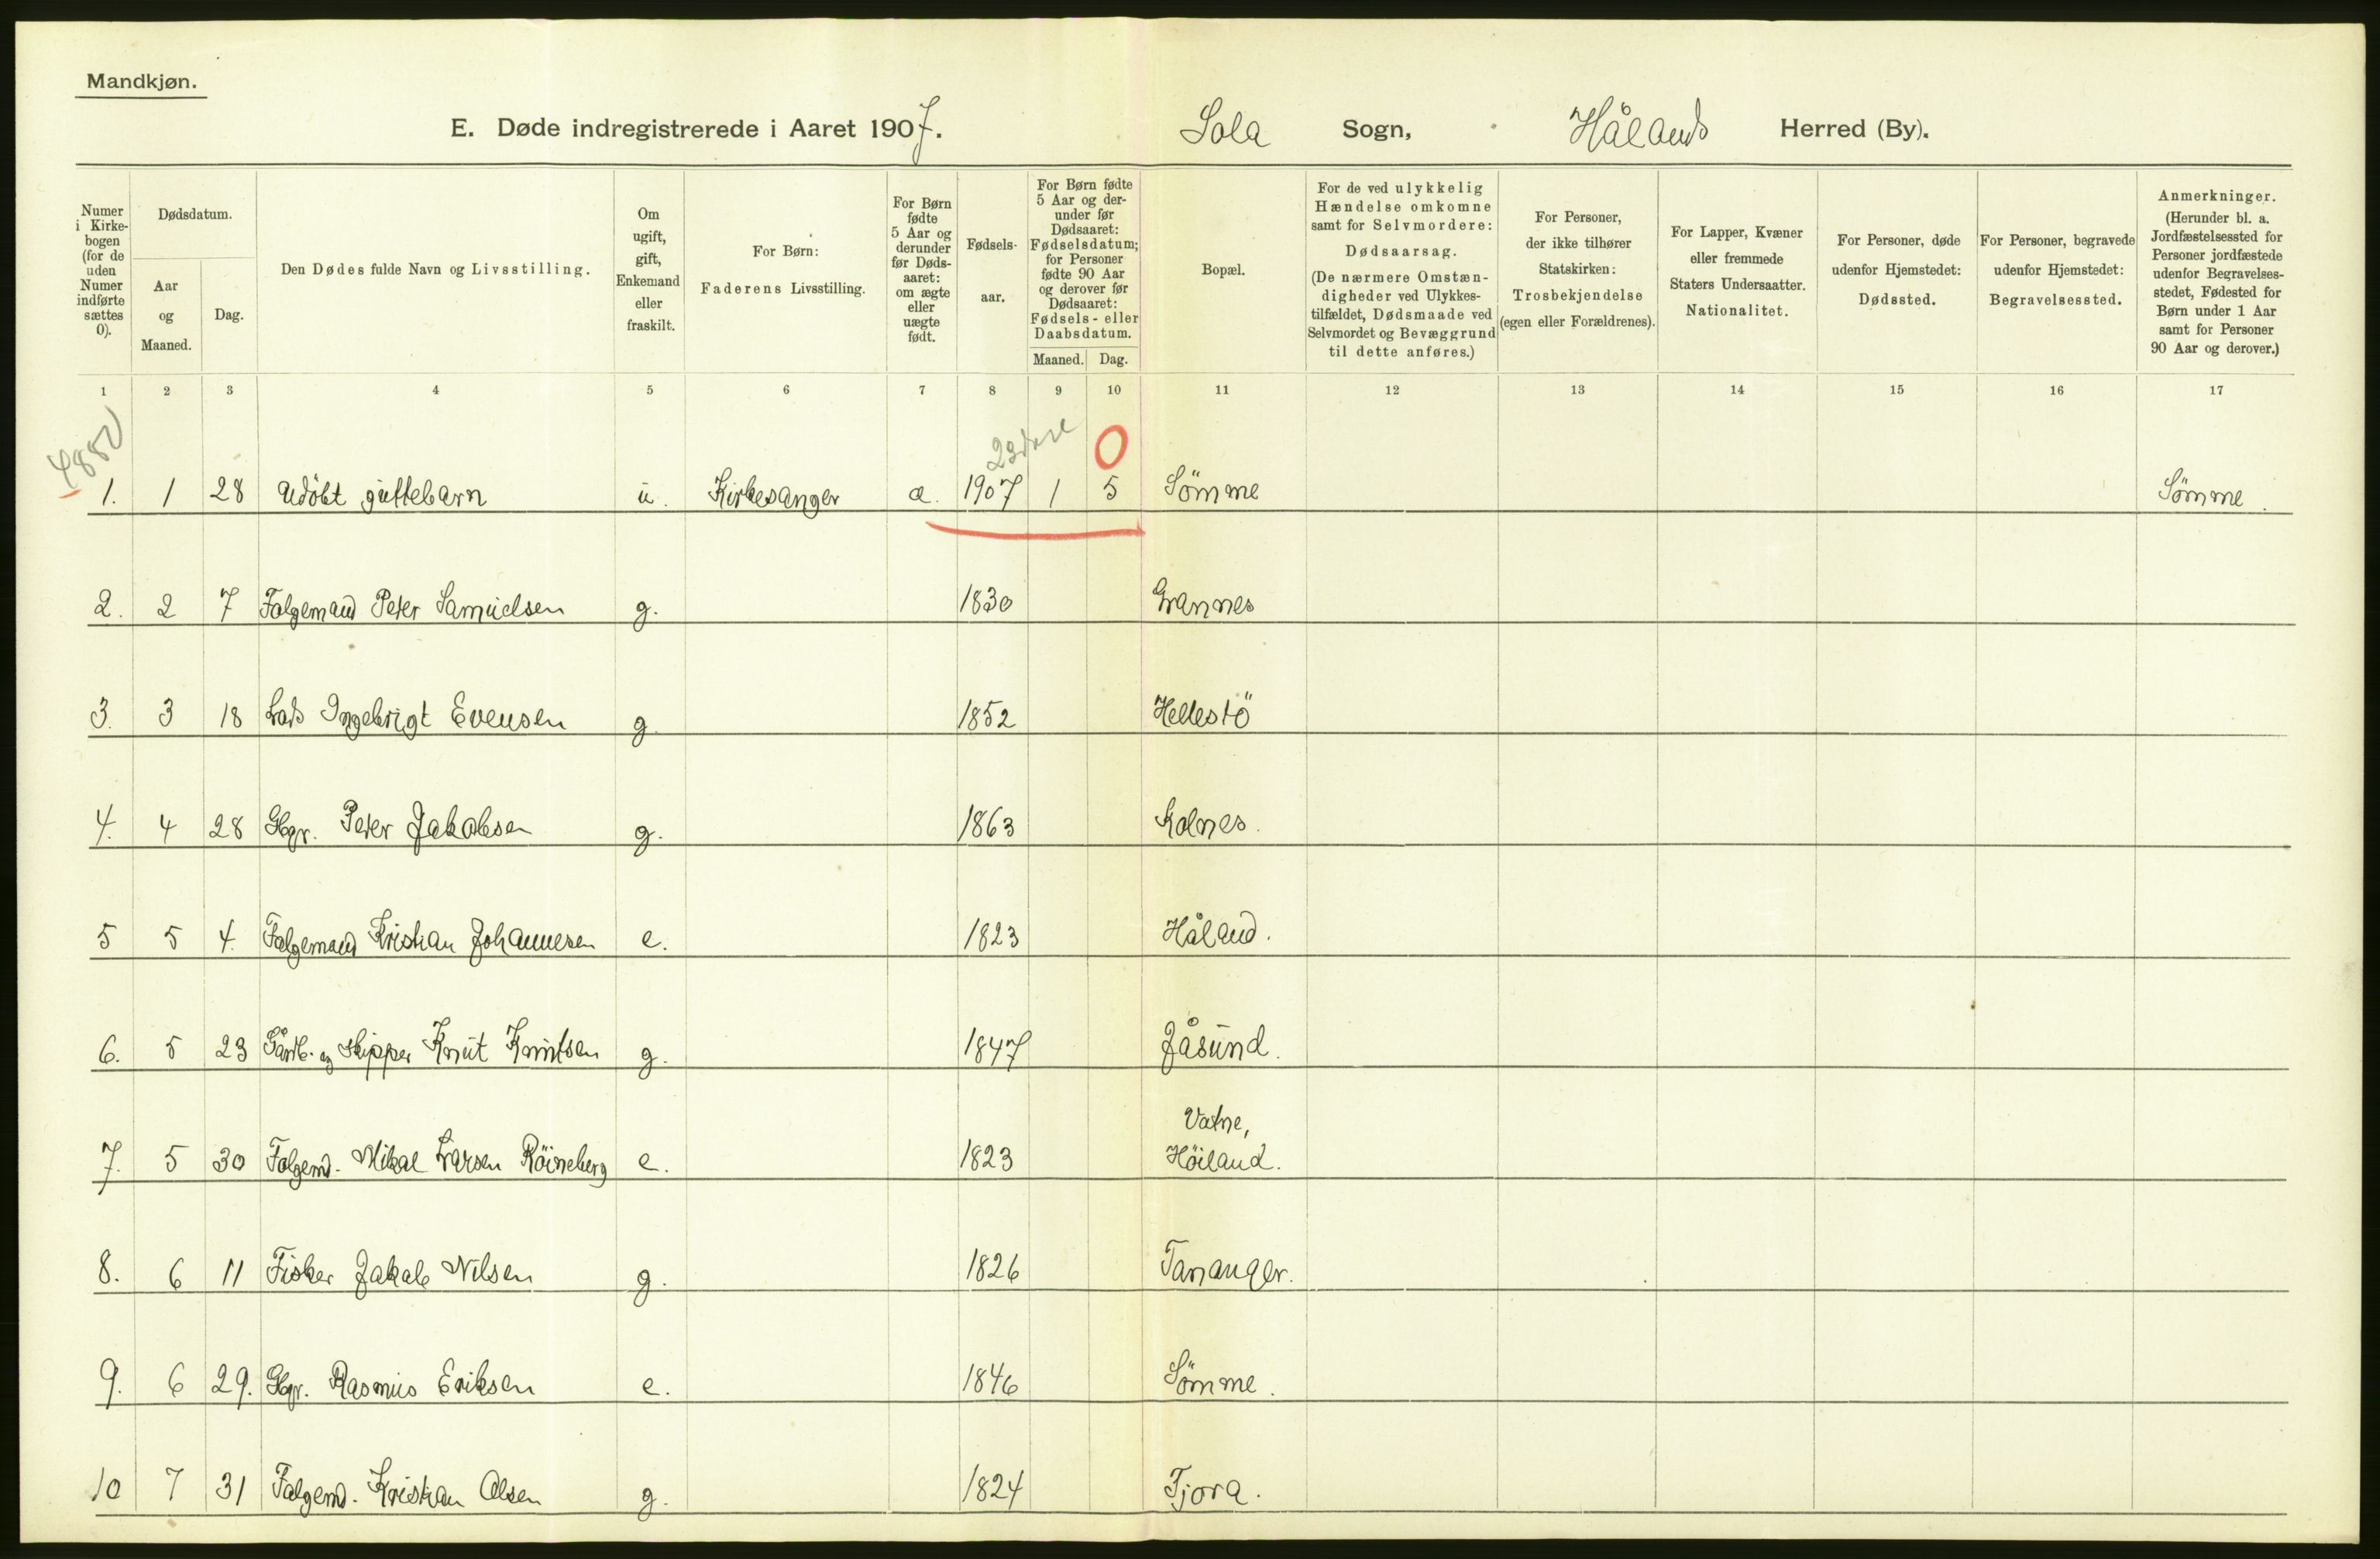 Mandkjøn.
E. Døde indregistrerede i Aaret 1907. Sola Sogn, Hålands Herred (By).
Numer i Kirkebogen (for de uden Numer indførte sættes 0).
Dødsdatum.
Aar og Maaned.
Dag.
Den Dødes fulde Navn og Livsstilling.
Om ugift, gift, Enkemand eller fraskilt.
For Børn: Faderens Livsstilling.
For Børn fødte 5 Aar og derunder før Dødsaaret: om ægte eller uægte født.
Fødselsaar.
For Børn fødte 5 Aar og derunder før Dødsaaret: Fødselsdatum; for Personer fødte 90 Aar og derover før Dødsaaret: Fødsels- eller Daabsdatum.
Maaned. Dag.
Bopæl.
For de ved ulykkelig Hændelse omkomne samt for Selvmordere: Dødsaarsag. (De nærmere Omstændigheder ved Ulykkestilfældet, Dødsmaade ved Selvmordet og Bevæggrund til dette anføres.)
For Personer, der ikke tilhører Statskirken: Trosbekjendelse (egen eller Forældrenes).
For Lapper, Kvæner eller fremmede Staters Undersaatter. Nationalitet.
For Personer, døde udenfor Hjemstedet: Dødssted.
For Personer, begravede udenfor Hjemstedet: Begravelsessted.
Anmerkninger. (Herunder bl. a. Jordfæstelsessted for Personer jordfæstede udenfor Begravelsesstedet, Fødested for Børn under 1 Aar samt for Personer 90 Aar og derover.)
1 2 3 4 5 6 7 8 9 10 11 12 13 14 15 16 17
0
1. 1 28 Udöbt guttebarn u. Kirkesanger a. 1907 1 5 Sömme Sömme.
2. 2 7 Folgemand Peter Samuelsen g. 1830 Grannes
3. 3 18 Lods Ingebrigt Evensen g. 1852 Hellestö
4. 4 28 Gbr. Peter Jakobsen g. 1863 Kolnes.
5 5 4. Folgemand Kristian Johannesen e. 1823 Håland.
6. 5 23 Gårdb. og skipper Knut Knutsen g. 1847 Jåsund.
Vatne,
7. 5 30 Folgemd. Mikal Larsen Röineberg e. 1823 Höiland.
8. 6 11 Fisker Jakob Nilsen g. 1826 Tananger.
9. 6 29. Gbr. Rasmus Eriksen e. 1846 Sömme.
10 7 31 Folgemd. Kristian Olsen g. 1824 Tjora.